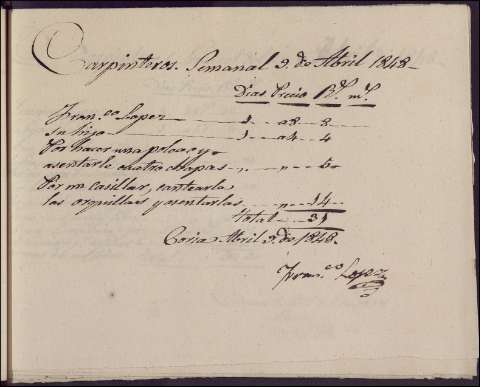 Carpinteros. Semanal 9. de Abril 1848
Dias Precio R.s m.s
Fran.co Lopez 1 a8 8
su hijo 1 a4 4
Por hacer una polea y
asentarle cuatro chapas
Por un casillar,
las orquillas y asentarlas 14
Total 31
Coria Abril 9. de 1848.
Fran.co Lopez